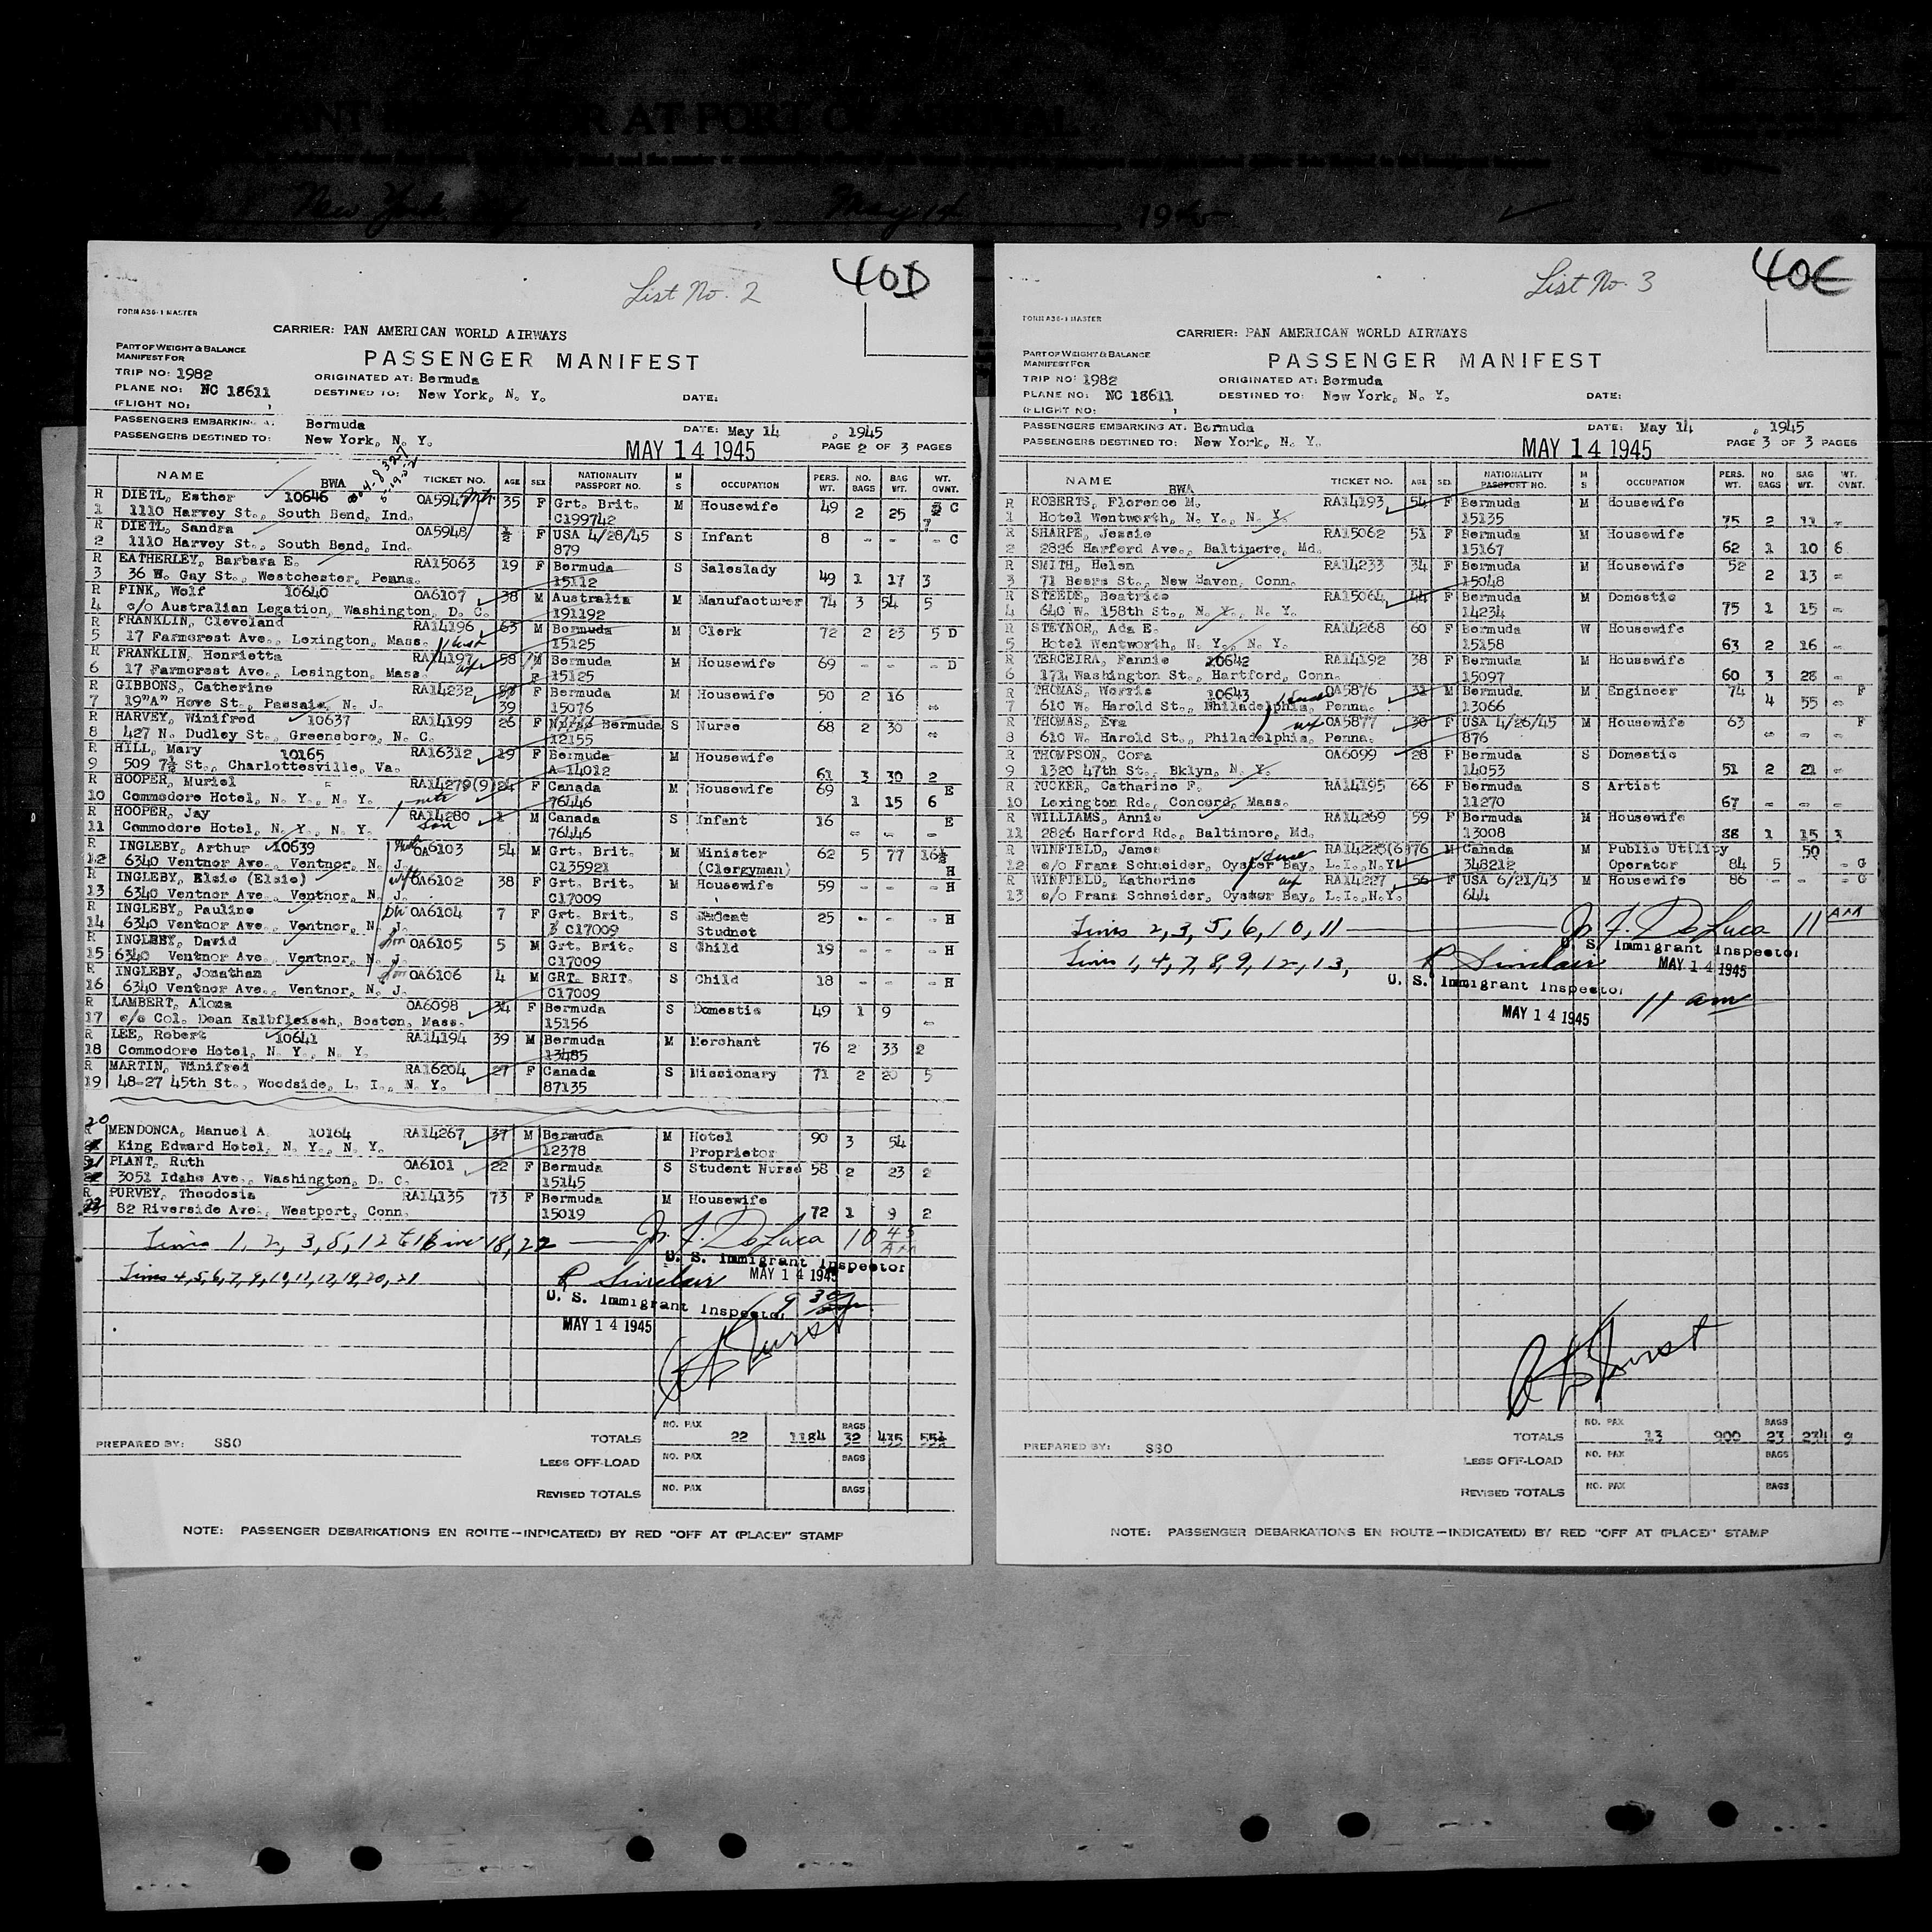 ANT INSPECTOR AT PORT OF ARRIVAL
New York, N.Y. , May 14 , 1945
List No. 2
40D
FORM A36-1 MASTER
CARRIER: PAN AMERICAN WORLD AIRWAYS
PART OF WEIGHT & BALANCE
MANIFEST FOR
PASSENGER MANIFEST
TRIP NO: 1982
ORIGINATED AT: Bermuda
PLANE NO: NC 18611
DESTINED TO: New York, N. Y.
DATE:
(FLIGHT NO: )
PASSENGERS EMBARKING AT: Bermuda
DATE: May 14 , 1945
PASSENGERS DESTINED TO: New York, N. Y.
MAY 14 1945
PAGE 2 OF 3 PAGES
NAME BWA TICKET NO. AGE SEX NATIONALITY PASSPORT NO. M S OCCUPATION PERS. WT. NO. BAGS BAG WT. WT. OVNT.
R DIETL, Esther 10646 OA5947 35 F Grt. Brit. M Housewife 49 2 25 C
1 1110 Harvey St., South Bend, Ind. C199742 7
R DIETL, Sandra OA5948 ½ F USA 4/28/45 S Infant 8 - - - C
2 1110 Harvey St., South Bend, Ind. 879
R EATHERLEY, Barbara E. RA15063 19 F Bermuda S Saleslady 49 1 17 3
3 36 W. Gay St., Westchester, Penna. 15112
R FINK, Wolf 10640 OA6107 38 M Australia M Manufacturer 74 3 54 5
4 c/o Australian Legation, Washington, D. C. 191192
R FRANKLIN, Cleveland RA14196 63 M Bermuda M Clerk 72 2 23 5 D
5 17 Farmcrest Ave., Lexington, Mass. 15125
R FRANKLIN, Henrietta RA14197 58 M Bermuda M Housewife 69 - - - D
6 17 Farmcrest Ave., Lesington, Mass. F 15125
R GIBBONS, Catherine RA14232 F Bermuda M Housewife 50 2 16 -
7 19"A" Hove St., Passaic, N. J. 39 15076
R HARVEY, Winifred 10637 RA14199 26 F Bermuda S Nurse 68 2 30 -
8 427 N. Dudley St., Greensboro, N. C. 12155
R HILL, Mary 10165 RA16312 19 F Bermuda M Housewife 61 3 30 2
9 509 7½ St., Charlottesville, Va. A-14012
R HOOPER, Muriel RA14279(9) 24 F Canada M Housewife 69 1 15 6 E
10 Commodore Hotel, N. Y., N. Y. 76446
R HOOPER, Jay RA14280 son 1 M Canada S Infant 16 - - - E
11 Commodore Hotel, N. Y., N. Y. 76446
R INGLEBY, Arthur 10639 OA6103 54 M Grt. Brit. M Minister 62 5 77 16½ H
12 6340 Ventnor Ave., Ventnor, N. J. C135921 (Clergyman)
R INGLEBY, Elsie (Elsie) wife OA6102 38 F Grt. Brit. M Housewife 59 - - - H
13 6340 Ventnor Ave., Ventnor, N. J. C17009
R INGLEBY, Pauline OA6104 7 F Grt. Brit. S Student 25 - - - H
14 6340 Ventnor Ave., Ventnor, N. J. C17009 Studnet
R INGLEBY, David son OA6105 5 M Grt. Brit. S Child 19 - - - H
15 6340 Ventnor Ave., Ventnor, N. J. C17009
R INGLEBY, Jonathan son OA6106 4 M GRT. BRIT. S Child 18 - - - H
16 6340 Ventnor Ave., Ventnor, N. J. C17009
R LAMBERT, Aloma OA6098 34 F Bermuda S Domestic 49 1 9 -
17 c/o Col. Dean Kalbfleisch, Boston, Mass. 15156
R LEE, Robert 10641 RA14194 39 M Bermuda M Merchant 76 2 33 2
18 Commodore Hotel, N. Y., N. Y. 13485
R MARTIN, Winifred RA16204 27 F Canada S Missionary 71 2 20 5
19 48-27 45th St., Woodside, L. I., N. Y. 87135
20
R MENDONCA, Manuel A. 10164 RA14267 37 M Bermuda M Hotel 90 3 54
King Edward Hotel, N. Y., N. Y. 12378 Proprietor
21 PLANT, Ruth OA6101 22 F Bermuda S Student Nurse 58 2 23 2
3051 Idaho Ave., Washington, D. C. 15145
R PURVEY, Theodosia RA14135 73 F Bermuda M Housewife 72 1 9 2
82 Riverside Ave., Westport, Conn. 15019
Lines 1, 2, 3, 8, 12 to 16 inc 18, 22 — J. F. DeLuca 10 45 AM
U. S. Immigrant Inspector
MAY 14 1945
Lines 4, 5, 6, 7, 9, 10, 11, 12, 19, 20, 21
R Sinclair
U. S. Immigrant Inspector 9 30
MAY 14 1945
TOTALS NO. PAX 22 1184 BAGS 32 435 55½
PREPARED BY: SSO
LESS OFF-LOAD NO. PAX BAGS
REVISED TOTALS NO. PAX BAGS
NOTE: PASSENGER DEBARKATIONS EN ROUTE—INDICATE(D) BY RED "OFF AT (PLACE)" STAMP
List No. 3
40E
FORM A36-1 MASTER
CARRIER: PAN AMERICAN WORLD AIRWAYS
PART OF WEIGHT & BALANCE
MANIFEST FOR
PASSENGER MANIFEST
TRIP NO: 1982
ORIGINATED AT: Bermuda
PLANE NO: NC 18611
DESTINED TO: New York, N. Y.
DATE:
(FLIGHT NO: )
PASSENGERS EMBARKING AT: Bermuda
DATE: May 14 , 1945
PASSENGERS DESTINED TO: New York, N. Y.
MAY 14 1945
PAGE 3 OF 3 PAGES
NAME BWA TICKET NO. AGE SEX NATIONALITY PASSPORT NO. M S OCCUPATION PERS. WT. NO BAGS BAG WT. WT. OVNT.
R ROBERTS, Florence M. RA14193 54 F Bermuda M Housewife 75 2 11 -
1 Hotel Wentworth, N. Y., N. Y. 15135
R SHARPE, Jessie RA15062 51 F Bermuda M Housewife 62 1 10 6
2 2826 Harford Ave., Baltimore, Md. 15167
R SMITH, Helen RA14233 34 F Bermuda M Housewife 52 2 13 -
3 71 Beers St., New Haven, Conn. 15048
R STEEDE, Beatrice RA15064 44 F Bermuda M Domestic 75 1 15 -
4 640 W. 158th St., N. Y., N. Y. 14234
R STEYNOR, Ada E. RA14268 60 F Bermuda W Housewife 63 2 16 -
5 Hotel Wentworth, N. Y., N. Y. 15158
R TERCEIRA, Fannie 10642 RA14192 38 F Bermuda M Housewife 60 3 28 -
6 171 Washington St., Hartford, Conn. 15097
R THOMAS, Worris 10643 OA5876 31 M Bermuda M Engineer 74 4 55 - F
7 610 W. Harold St., Philadelphia, Penna. 13066
R THOMAS, Eva OA5877 30 F USA 4/26/45 M Housewife 63 - - - F
8 610 W. Harold St., Philadelphia, Penna. 876
R THOMPSON, Cora OA6099 28 F Bermuda S Domestic 51 2 21 -
9 1320 47th St., Bklyn, N. Y. 14053
R TUCKER, Catharine F. RA14195 66 F Bermuda S Artist 67 - - -
10 Lexington Rd., Concord, Mass. 11270
R WILLIAMS, Annie RA14269 59 F Bermuda M Housewife 88 1 15 3
11 2826 Harford Rd., Baltimore, Md. 13008
R WINFIELD, James RA14223(6) 76 M Canada M Public Utility 84 5 50 - G
12 c/o Franz Schneider, Oyster Bay, L.I., N.Y. 348212 Operator
R WINFIELD, Katherine RA14227 56 F USA 6/21/43 M Housewife 86 - - - G
13 c/o Franz Schneider, Oyster Bay, L.I., N.Y. 644
Lines 2, 3, 5, 6, 10, 11 — J. F. DeLuca 11 AM
U. S. Immigrant Inspector
MAY 14 1945
Lines 1, 4, 7, 8, 9, 12, 13, R Sinclair
U. S. Immigrant Inspector
MAY 14 1945 11 am
TOTALS NO. PAX 13 900 BAGS 23 234 9
PREPARED BY: SSO
LESS OFF-LOAD NO. PAX BAGS
REVISED TOTALS NO. PAX BAGS
NOTE: PASSENGER DEBARKATIONS EN ROUTE—INDICATE(D) BY RED "OFF AT (PLACE)" STAMP